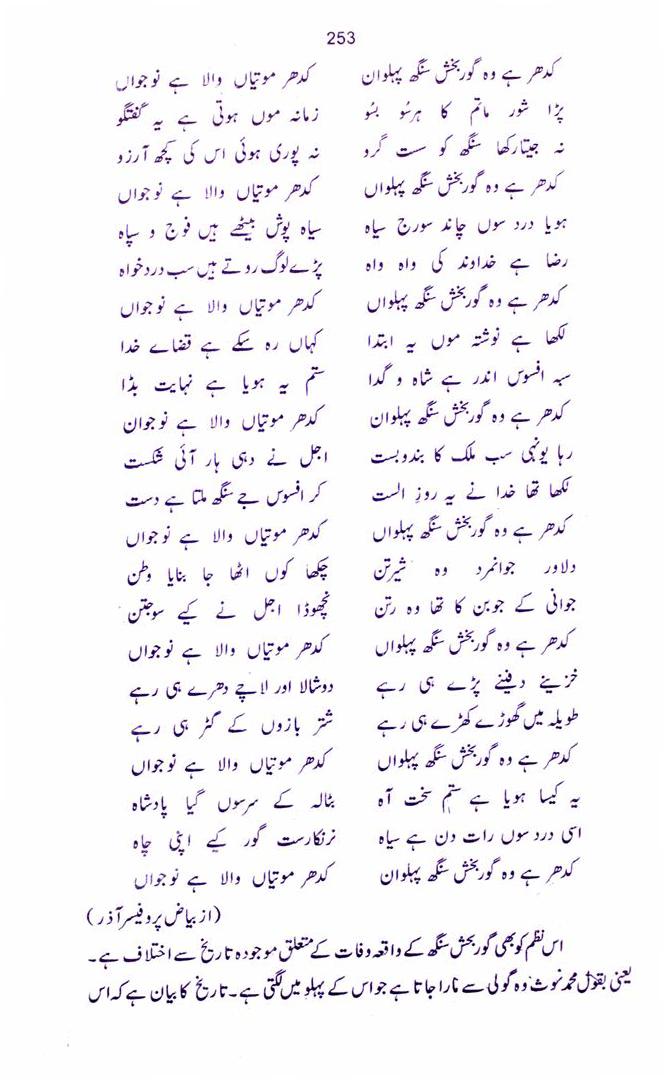 253
کدھر ہے وہ گوربخش سنگھ پہلوان کدھر موتیاں والا ہے نوجواں
پڑا شور ماتم کا ہرسُو بسُو زمانہ موں ہوتی ہے یہ گفتگو
نہ جیتا رکھا سنگھ کو ست گرو نہ پوری ہوئی اس کی کچھ آرزو
کدھر ہے وہ گوربخش سنگھ پہلواں کدھر موتیاں والا ہے نوجواں
ہویا درد سوں چاند سورج سیاہ سیاہ پوش بیٹھے ہیں فوج و سپاہ
رضا ہے خداوند کی واہ واہ پڑے لوگ روتے ہیں سب درد خواہ
کدھر ہے وہ گوربخش سنگھ پہلواں کدھر موتیاں والا ہے نوجواں
لکھا ہے نوشتہ موں یہ ابتدا کہاں رہ سکے ہے قضاے خدا
سبہ افسوس اندر ہے شاہ و گدا ستم یہ ہویا ہے نہایت بڈا
کدھر ہے وہ گوربخش سنگھ پہلوان کدھر موتیاں والا ہے نوجوان
رہا یونہی سب ملک کا بندوبست اجل نے دہی ہار آئی شکست
لکھا تھا خدا نے یہ روزِ الست کر افسوس جے سنگھ ملتا ہے دست
کدھر ہے وہ گوربخش سنگھ پہلواں کدھر موتیاں والا ہے نوجواں
دلاور جوانمرد وہ شیرتن چکھا کوں اٹھا جا بنایا وطن
جوانی کے جوبن کا تھا وہ رتن نچھوڈا اجل نے کیے سوجتن
کدھر ہے وہ گوربخش سنگھ پہلواں کدھر موتیاں والا ہے نوجواں
خزینے دفینے پڑے ہی رہے دوشالا اور لاچے دھرے ہی رہے
طویلہ میں گھوڑے کھڑے ہی رہے شتر بازوں کے گٹر ہی رہے
کدھر ہے وہ گوربخش سنگھ پہلواں کدھر موتیاں والا ہے نوجواں
یہ کیسا ہویا ہے ستم سخت آہ بٹالہ کے سرسوں گیا پادشاہ
اسی درد سوں رات دن ہے سیاہ نرنکارست گور کیے اپنی چاہ
کدھر ہے وہ گوربخش سنگھ پہلوان کدھر موتیاں والا ہے نوجواں
(از بیاض پروفیسر آذر)
اس نظم کو بھی گوربخش سنگھ کے واقعہ وفات کے متعلق موجودہ تاریخ سے اختلاف ہے۔
یعنی بقول محمد غوث وہ گولی سے مارا جاتا ہے جو اس کے پہلو میں لگتی ہے۔ تاریخ کا بیان ہے کہ اس